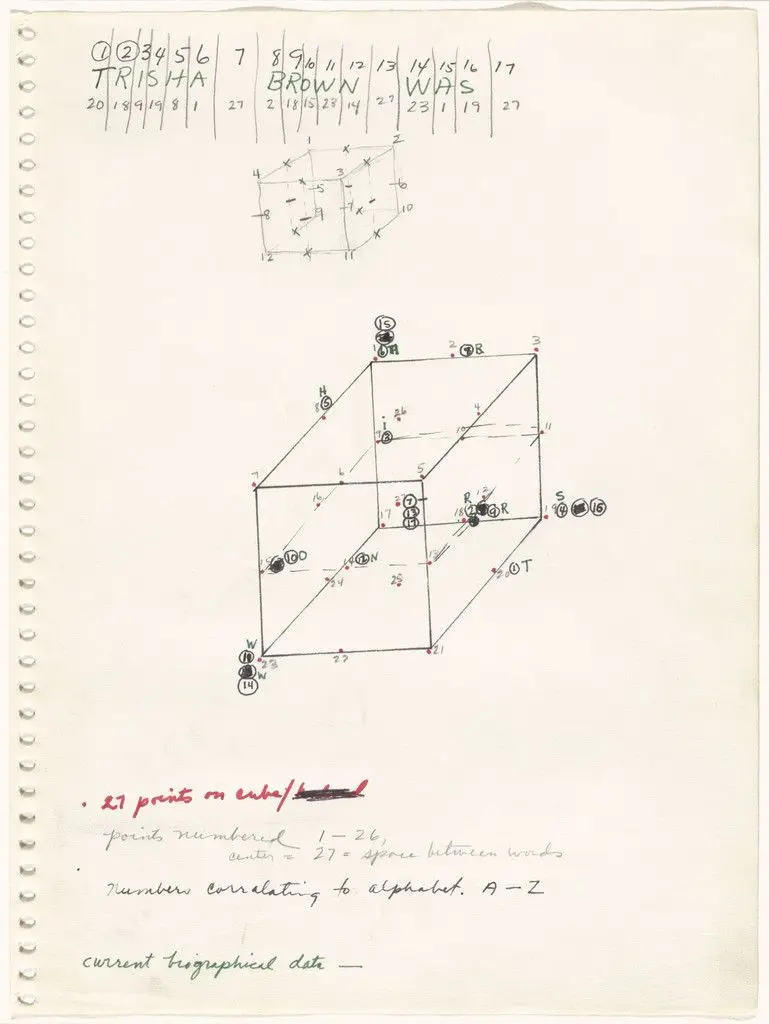 1 2 3 4 5 6 7 8 9 10 11 12 13 14 15 16 17
TRISHA BROWN WAS
20 18 9 19 8 1 27 2 18 15 23 14 27 23 1 19 27
1 2
4 3
5 6
8 9 7 10
12 11
15
1 6 A 2 8 B 3
H
8 5
i 26 4
9 3 10 11
7 6 5
16 27 7 12
R 2 9 R S
17 13 18 19 4 16
17
15 10 O 14 12 N 13
24 25 20 1 T
W
11 23 22 21
W
14
27 points on cube/
points numbered 1 – 26,
center = 27 = space between words
numbers corralating to alphabet. A – Z
current biographical data —